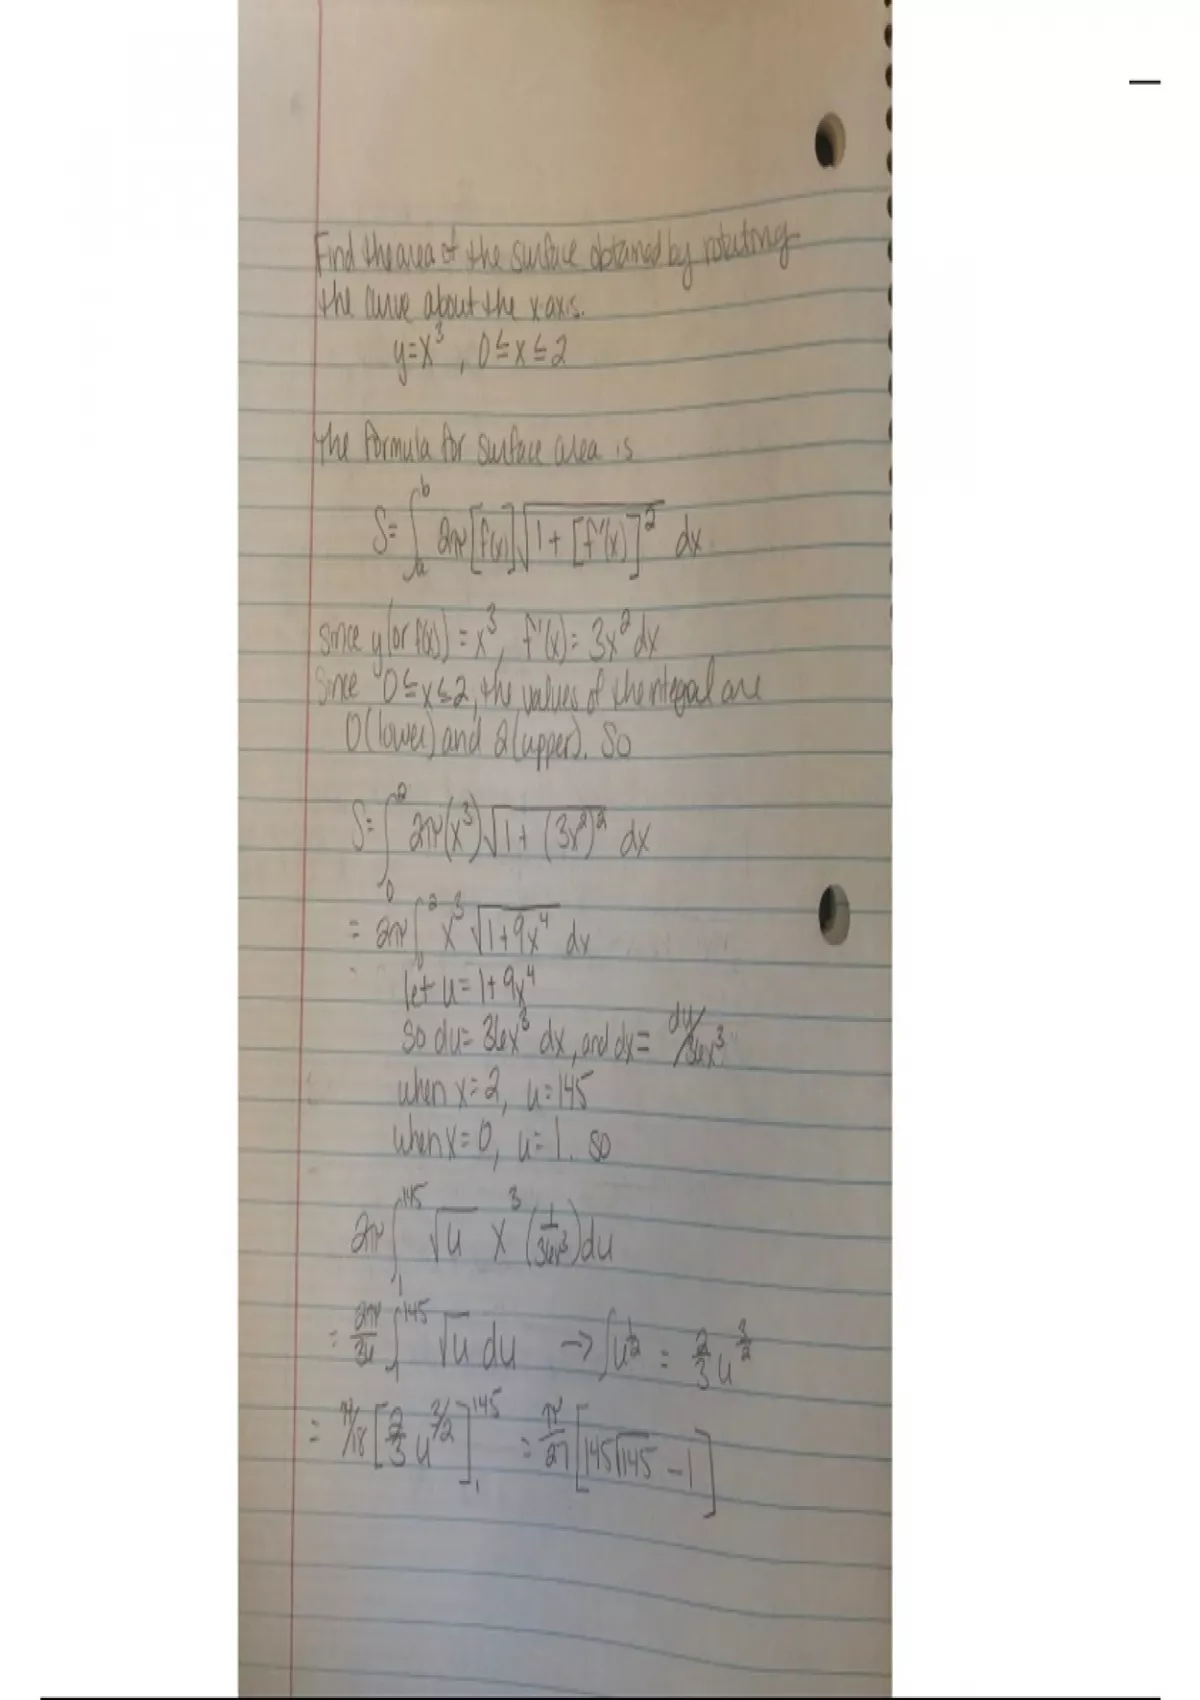 Find the area of the surface obtained by rotating
the curve about the x-axis.
y=x³, 0≤x≤2
The formula for surface area is
S=∫ₐᵇ 2π[f(x)]√(1+[f'(x)]²) dx
since y(or f(x))=x³, f'(x)=3x²dx
Since 0≤x≤2, the values of the integral are
0(lower) and 2(upper). So
S=∫₀² 2π(x³)√(1+(3x²)²) dx
= 2π∫₀² x³√(1+9x⁴) dx
let u=1+9x⁴
so du=36x³ dx, and dx= du/36x³
when x=2, u=145
when x=0, u=1. so
2π∫₁¹⁴⁵ √u x³(1/36x³)du
= 2π/36 ∫₁¹⁴⁵ √u du → ∫u^(1/2) = 2/3 u^(3/2)
= π/18 [2/3 u^(3/2)]₁¹⁴⁵ = π/27 [145√145 - 1]